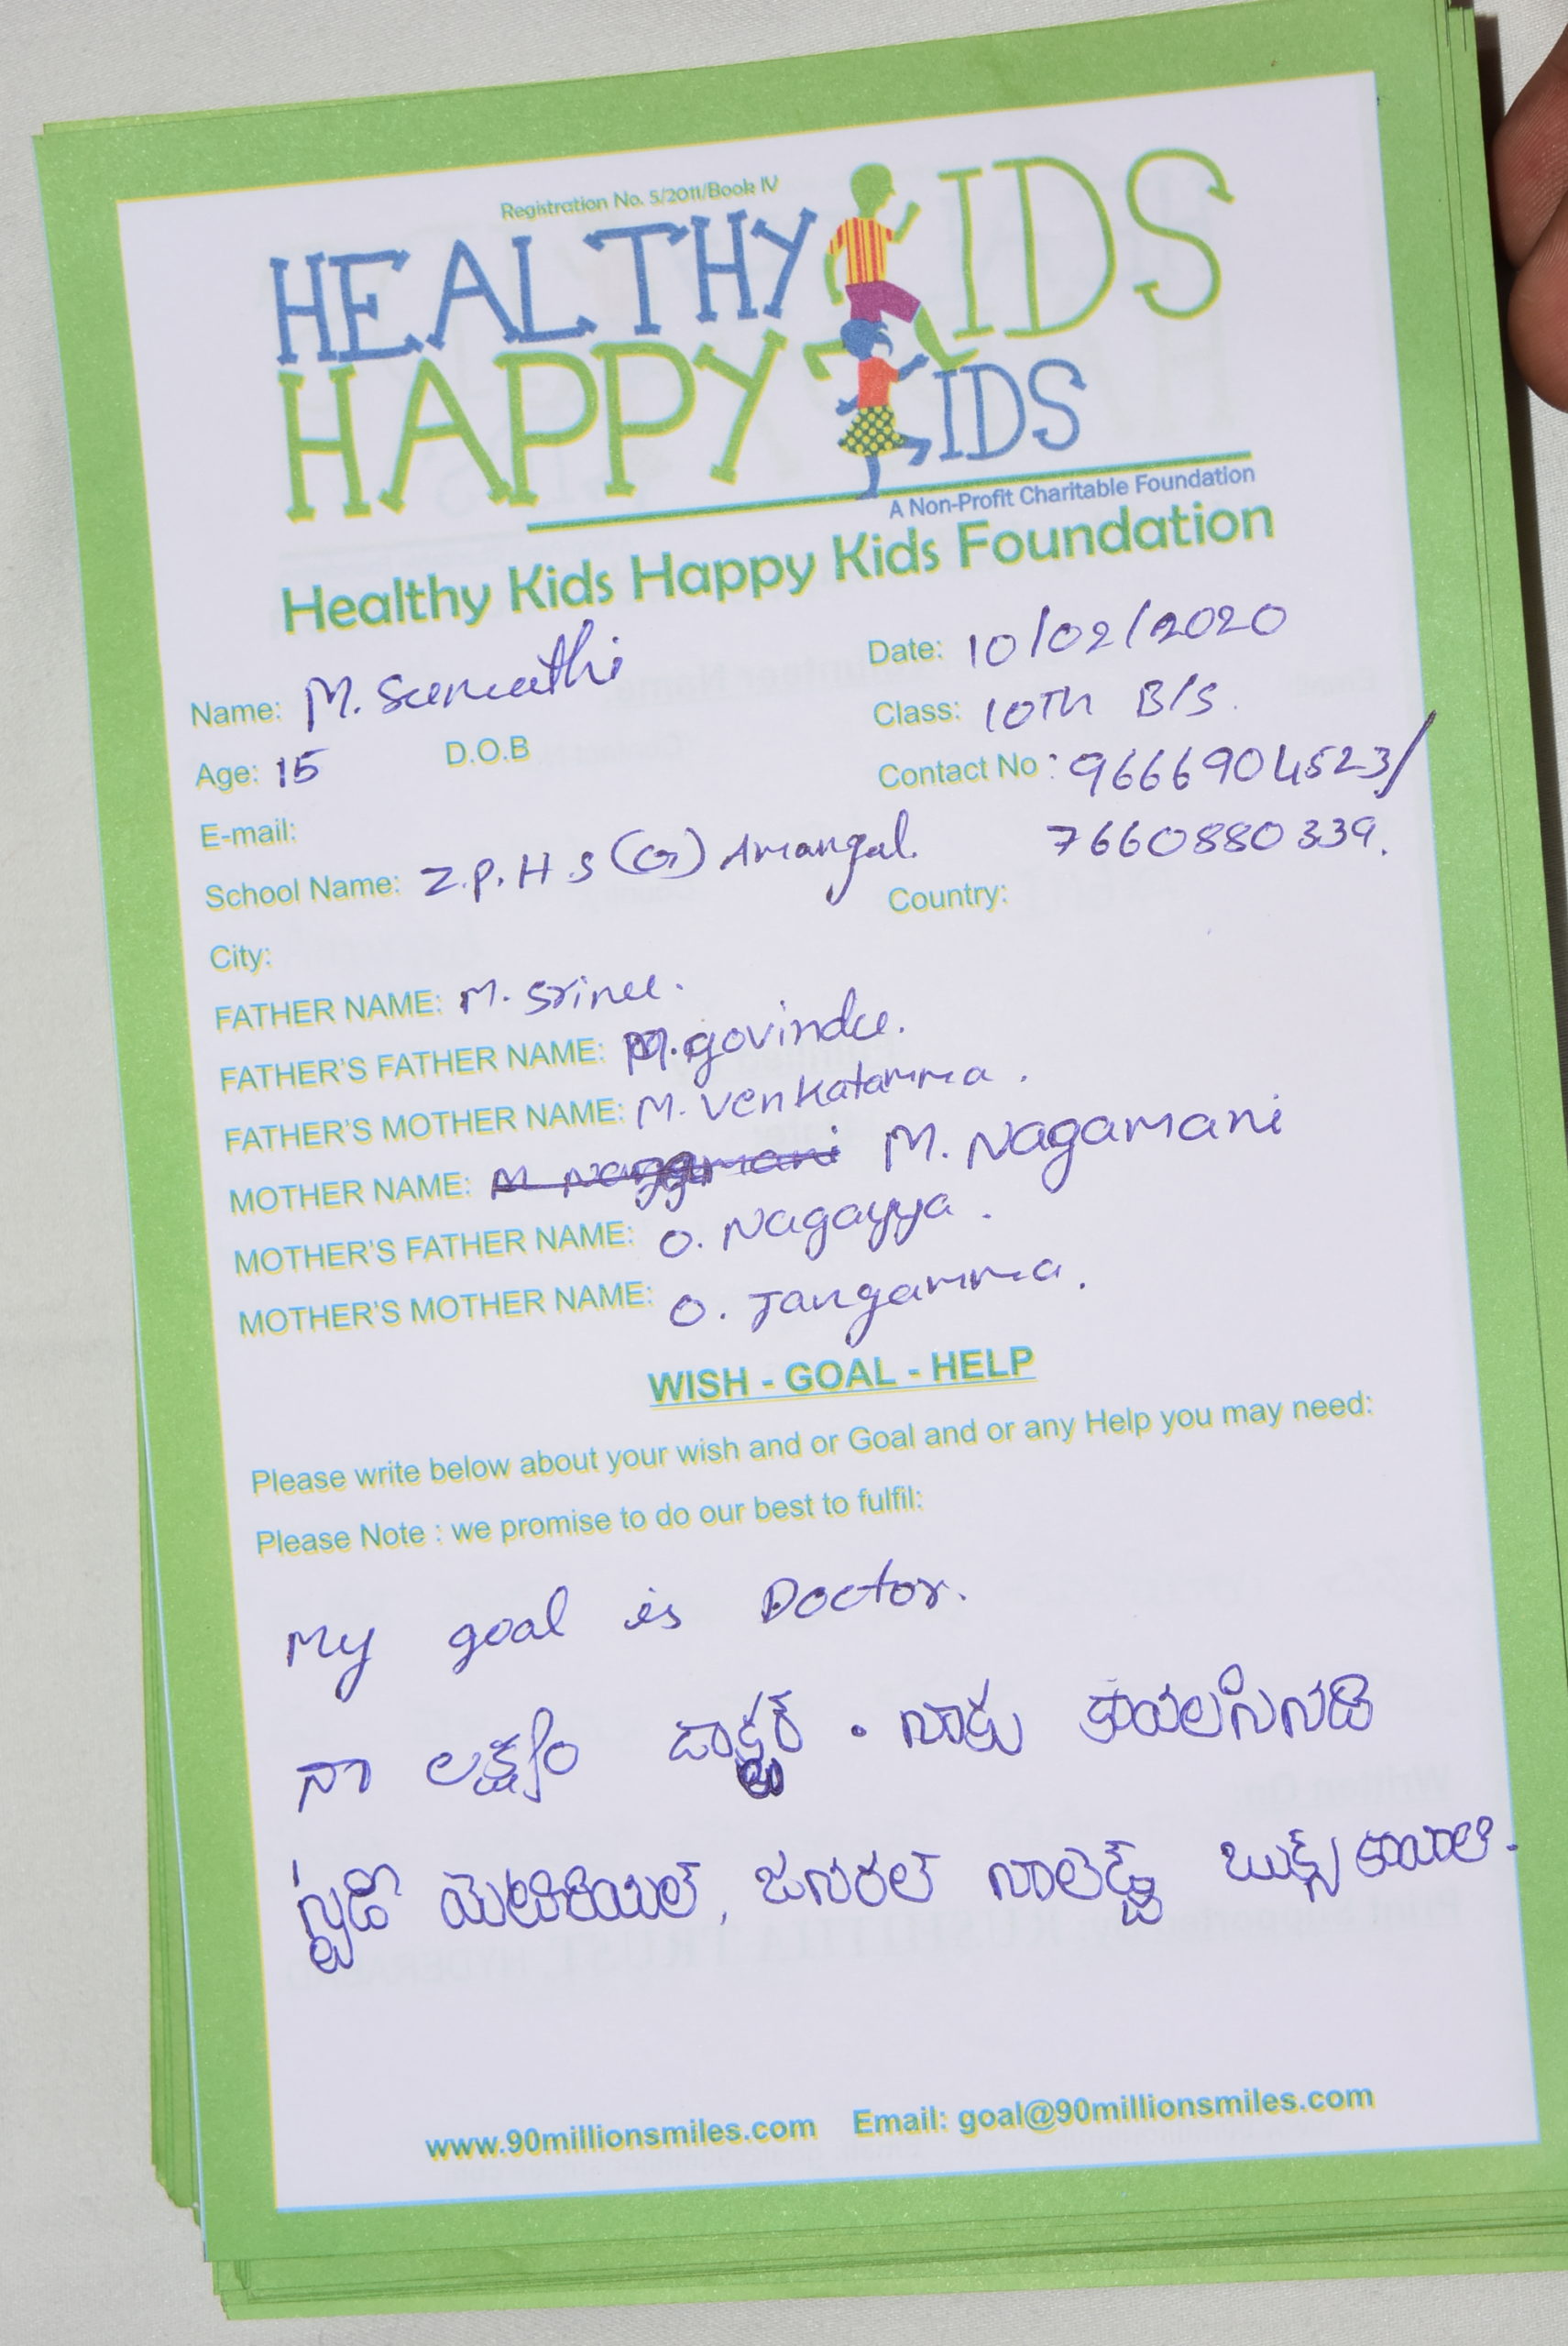 Registration No. 5/2011/Book IV
HEALTHY KIDS
HAPPY KIDS
A Non-Profit Charitable Foundation
Healthy Kids Happy Kids Foundation
Name: M. Sumathi
Date: 10/02/2020
Class: 10TH B/S.
Age: 15 D.O.B
Contact No : 9666904523/
7660880339.
E-mail:
School Name: Z.P.H.S (G) Amangal.
Country:
City:
FATHER NAME: M. Srinu.
FATHER'S FATHER NAME: M. govindu.
FATHER'S MOTHER NAME: M. Venkatamma.
MOTHER NAME: M. Nagamani
MOTHER'S FATHER NAME: O. Nagayya.
MOTHER'S MOTHER NAME: O. Jangamma.
WISH - GOAL - HELP
Please write below about your wish and or Goal and or any Help you may need:
Please Note : we promise to do our best to fulfil:
My goal is Doctor.
నా లక్ష్యం డాక్టర్. నాకు కావలసినది
స్టడీ మెటీరియల్, జనరల్ నాలెడ్జ్ బుక్స్ కావాలి.
www.90millionsmiles.com Email: goal@90millionsmiles.com